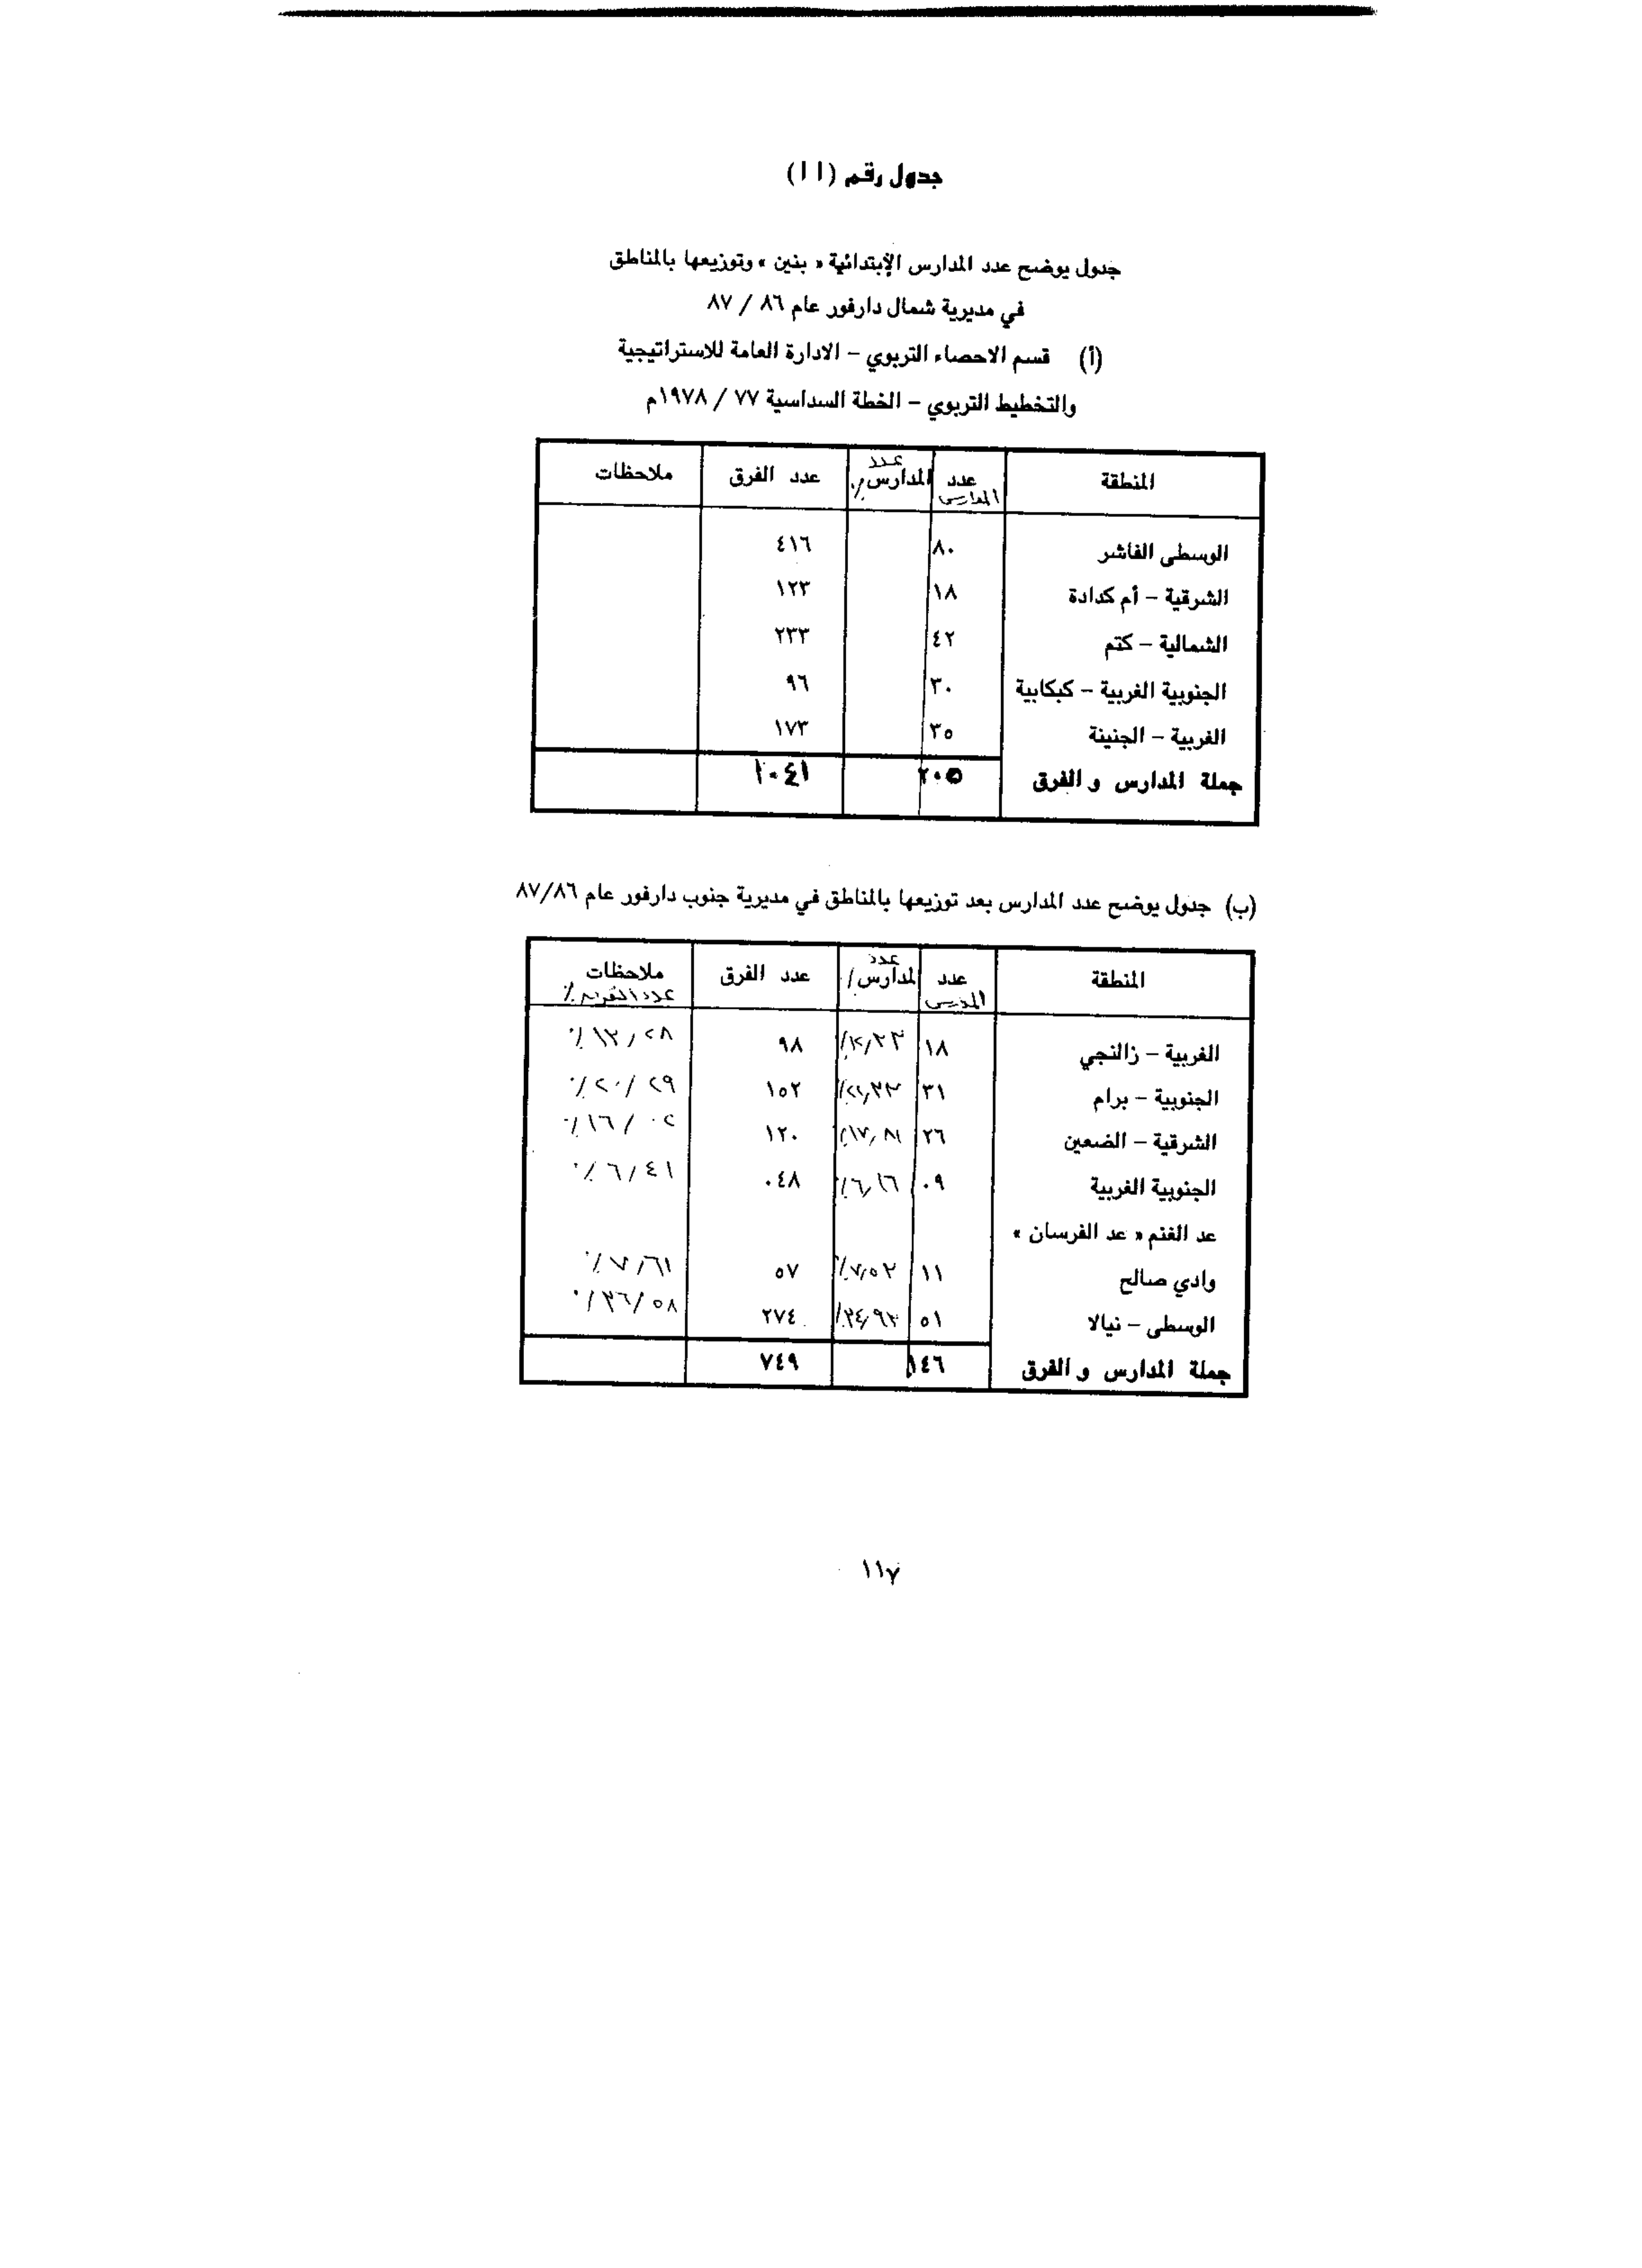 جدول رقم (١١)
جدول يوضح عدد المدارس الإبتدائية « بنين » وتوزيعها بالمناطق
في مديرية شمال دارفور عام ٨٦ / ٨٧
(أ) قسم الاحصاء التربوي – الادارة العامة للاستراتيجية
والتخطيط التربوي – الخطة السداسية ٧٧ / ١٩٧٨م
المنطقة عدد المدارس عدد المدارس٪ عدد الفرق ملاحظات
الوسطى الفاشر ٨٠ ٤١٦
الشرقية – أم كدادة ١٨ ١٢٣
الشمالية – كتم ٤٢ ٢٣٣
الجنوبية الغربية – كبكابية ٣٠ ٩٦
الغربية – الجنينة ٣٥ ١٧٣
جملة المدارس و الفرق ٢٠٥ ١٠٤١
(ب) جدول يوضح عدد المدارس بعد توزيعها بالمناطق في مديرية جنوب دارفور عام ٨٧/٨٦
المنطقة عدد المدارس عدد المدارس٪ عدد الفرق ملاحظات
الغربية – زالنجي ١٨ ٩٨
الجنوبية – برام ٣١ ١٥٢ ٢٠/٢٩٪
الشرقية – الضعين ٢٦ ١٢٠ ١٦/٠٢٪
الجنوبية الغربية ٠٩ ٦,١٦٪ ٠٤٨ ٦/٤١٪
عد الغنم « عد الفرسان »
وادي صالح ١١ ٧,٥٢٪ ٥٧ ٧/٦١٪
الوسطى – نيالا ٥١ ٣٤,٩٣٪ ٢٧٤ ٣٦/٥٨٪
جملة المدارس و الفرق ١٤٦ ٧٤٩
١١٧